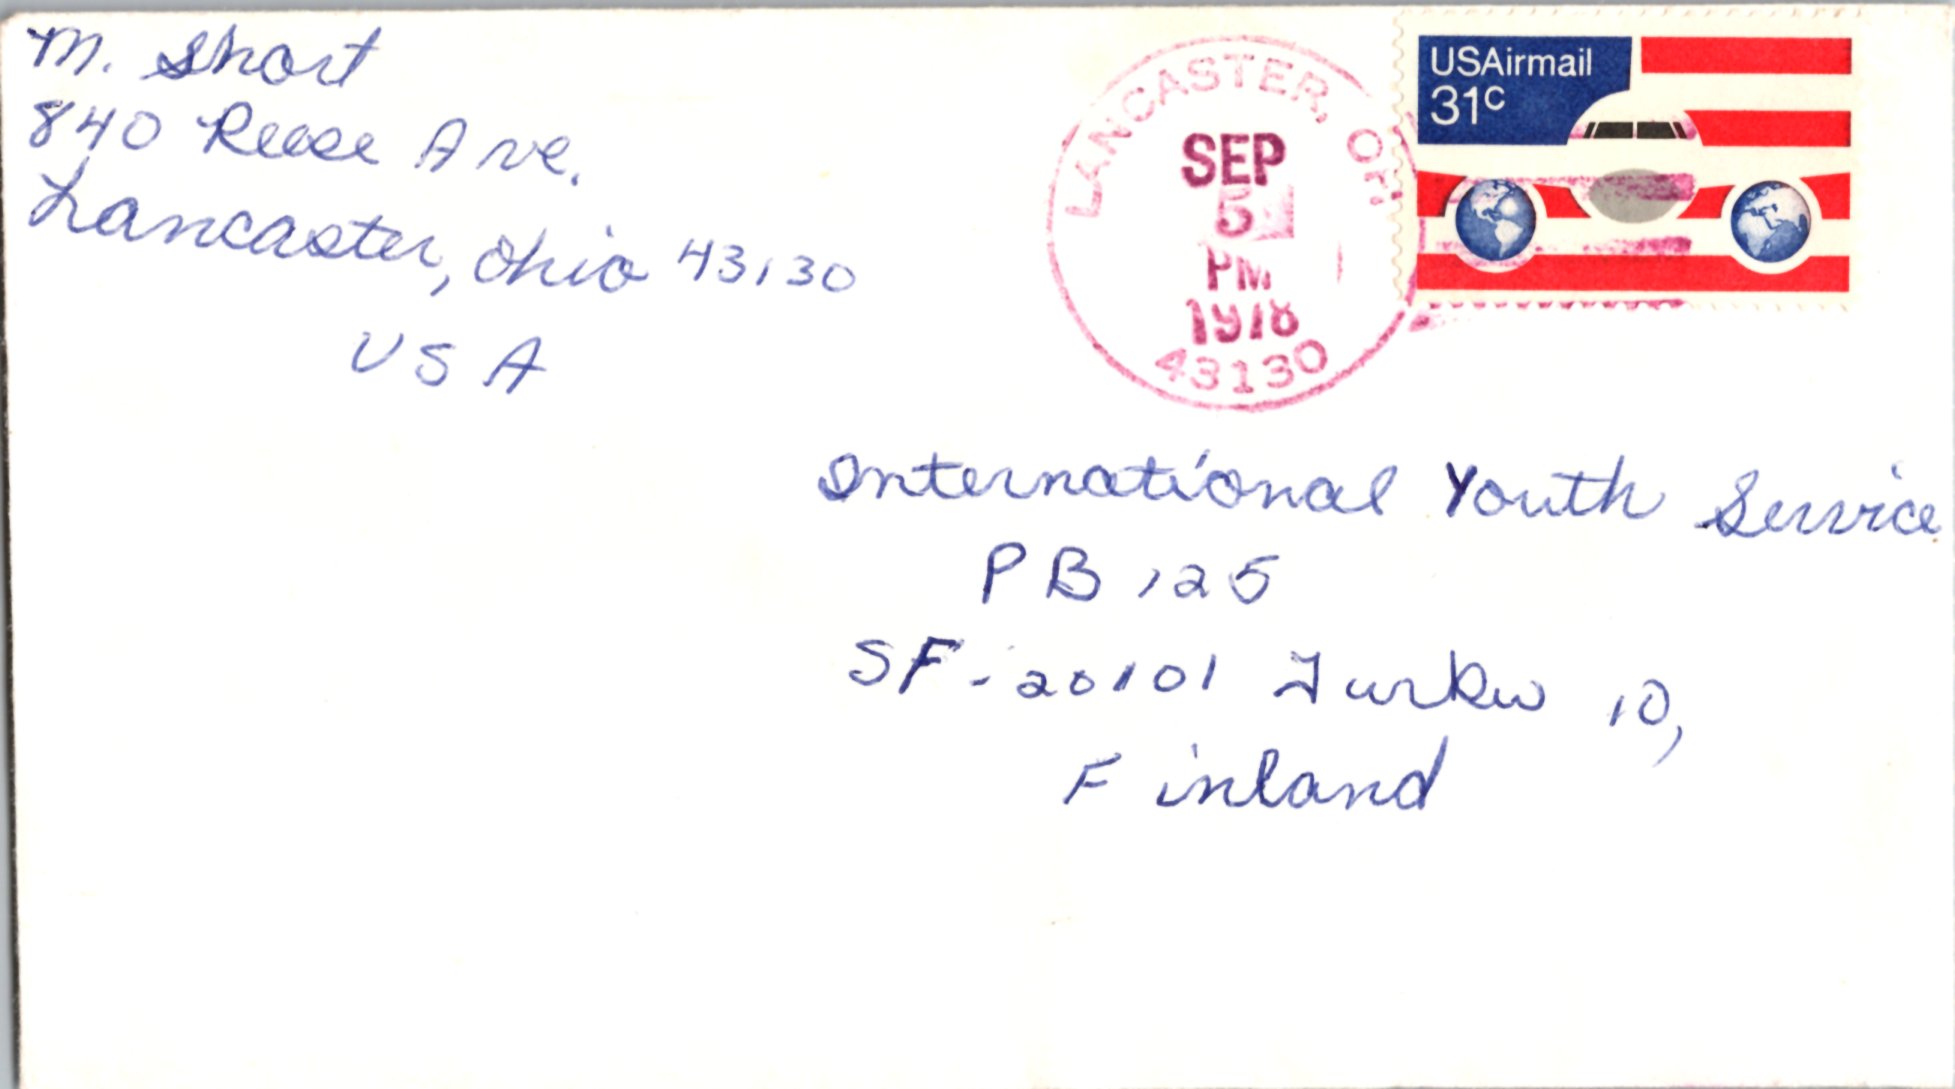 M. Short
840 Reese Ave.
Lancaster, Ohio 43130
USA
LANCASTER, OH.
SEP
5
PM
1978
43130
USAirmail
31c
International Youth Service
PB 125
SF-20101 Turku 10,
Finland